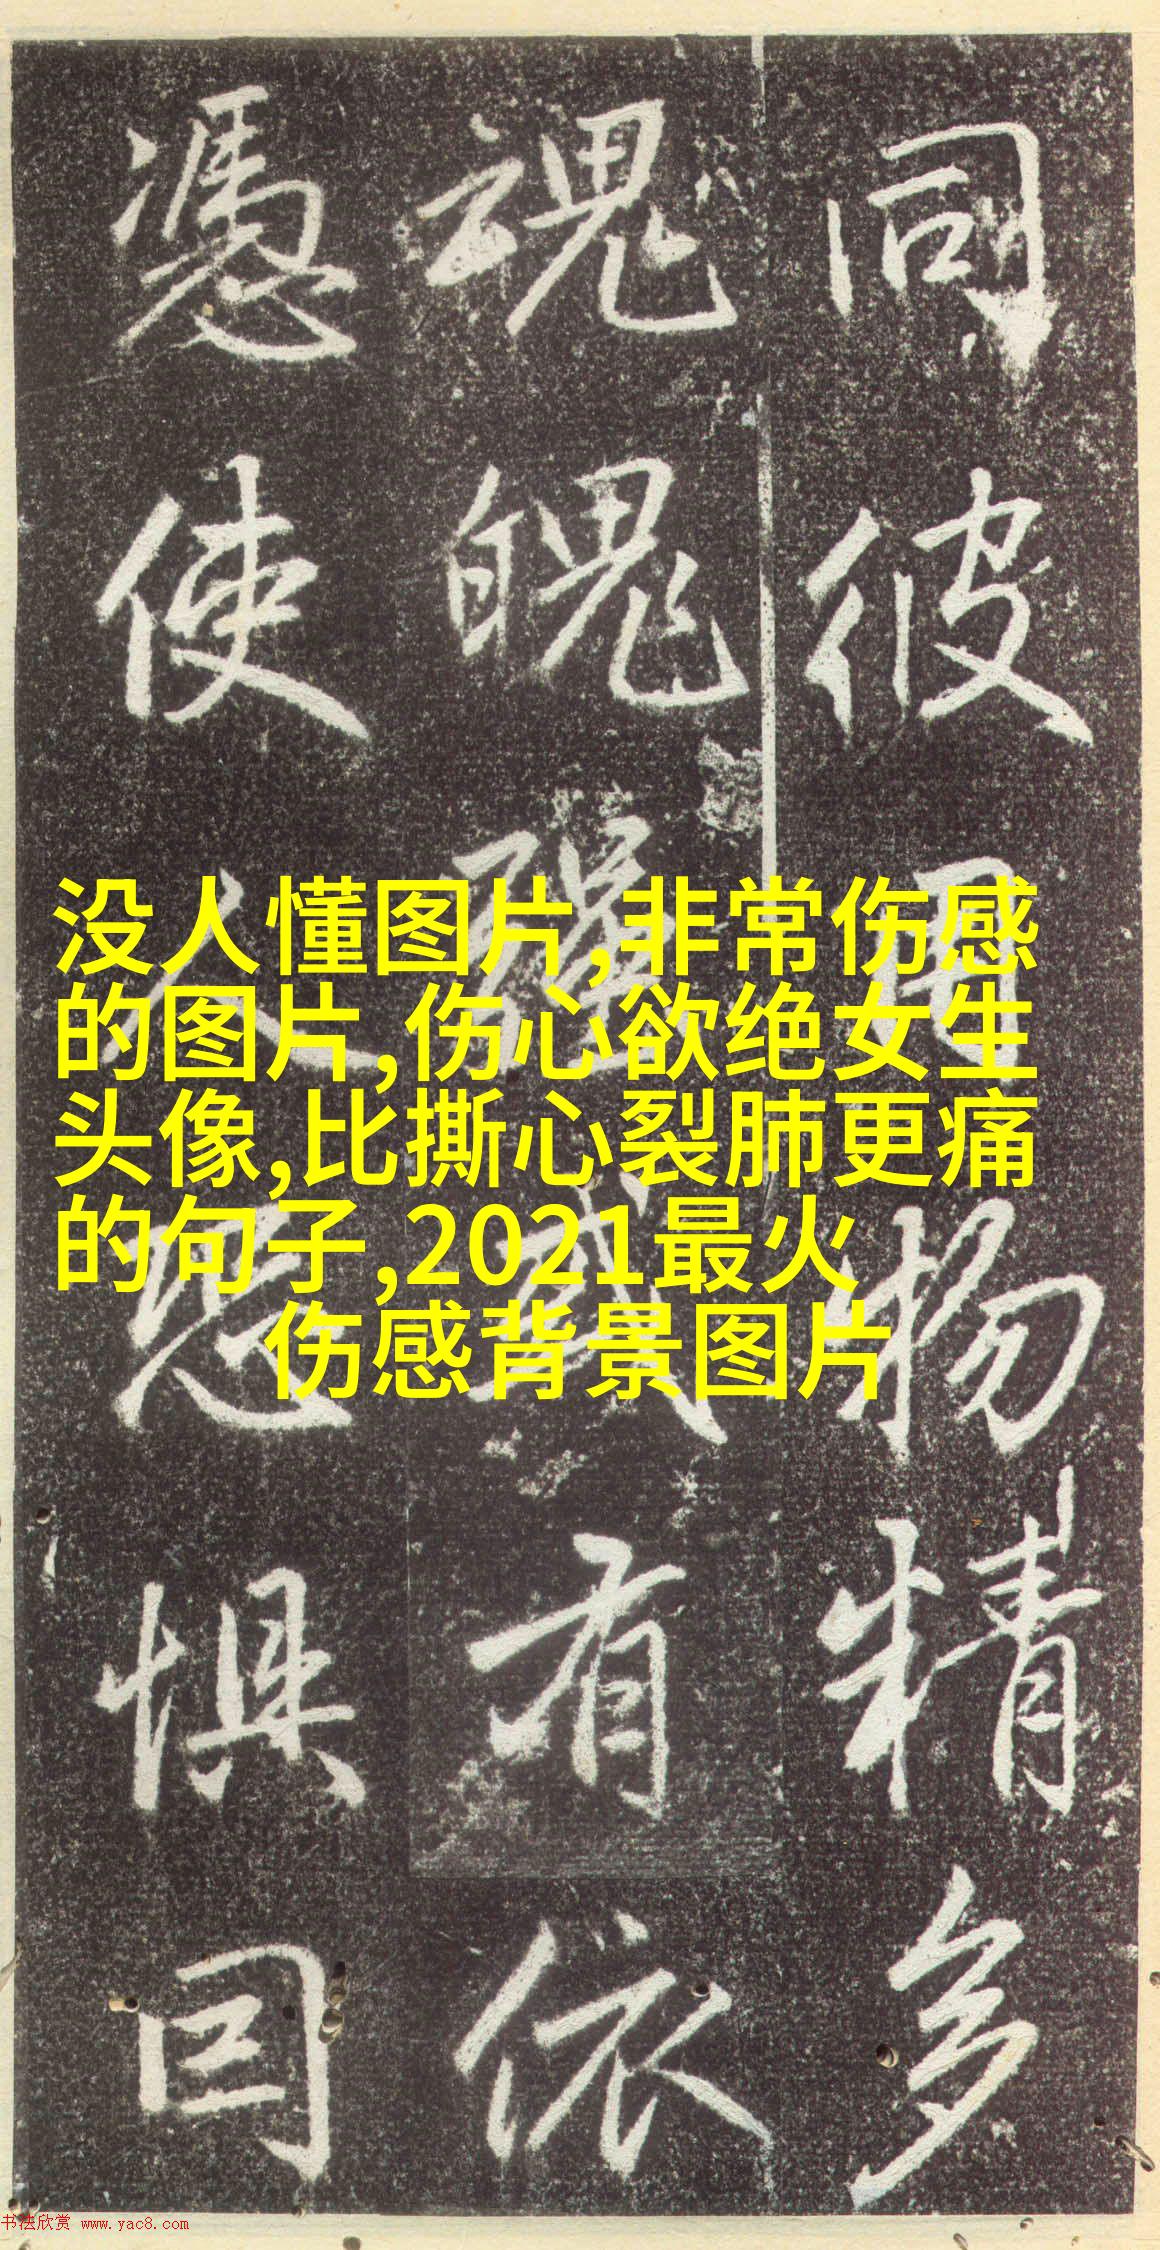 同彼用物精多
魂魄彊或有依
憑使人恐懼囙
没人懂图片,非常伤感
的图片,伤心欲绝女生
头像,比撕心裂肺更痛
的句子,2021最火
伤感背景图片
书法欣赏 www.yac8.com